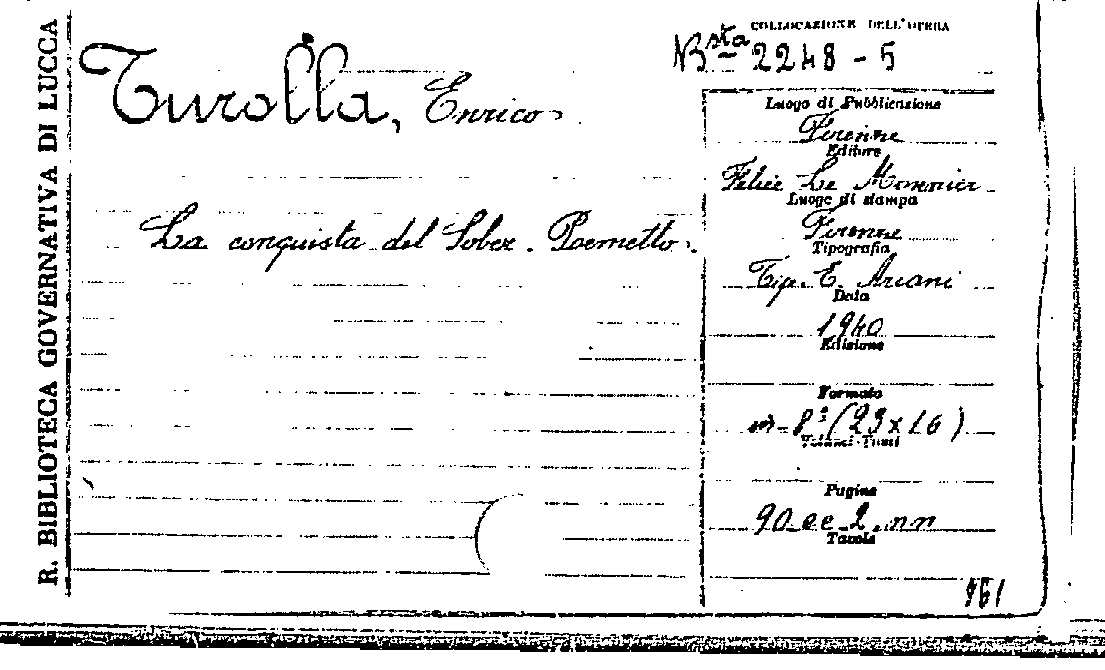 R. BIBLIOTECA GOVERNATIVA DI LUCCA
COLLOCAZIONE DELL'OPERA
Bsta 2248 - 5
Turolla, Enrico
La conquista del Sober. Poemetto.
Luogo di Pubblicazione
Firenze
Editore
Felice Le Monnier
Luogo di stampa
Firenze
Tipografia
Tip. E. Ariani
Data
1940
Edizione
Formato
in-8° (23x16)
Volumi-Tomi
Pagine
90 ee 2 nn
Tavole